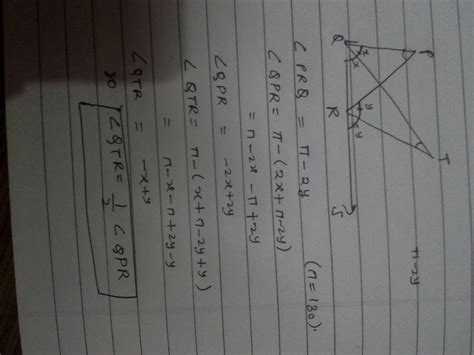 π-2y
P
T
Q
x
x
R
y
y
S
∠PRQ = π-2y (π=180).
∠QPR = π-(2x+π-2y)
= π-2x-π+2y
∠QPR = -2x+2y
∠QTR = π-(x+π-2y+y)
= π-x-π+2y-y
∠QTR = -x+y
so ∠QTR = 1/2 ∠QPR